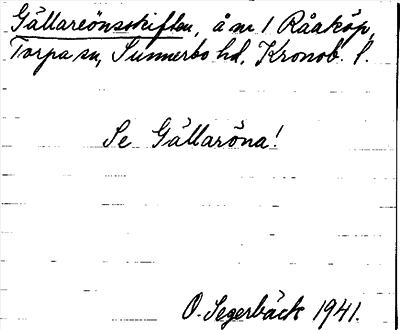 Gällareönsskiften, å nr 1 Råaköp,
Torpa sn, Sunnerbo hd, Kronob. l.
Se Gällaröna!
O. Segerbäck 1941.